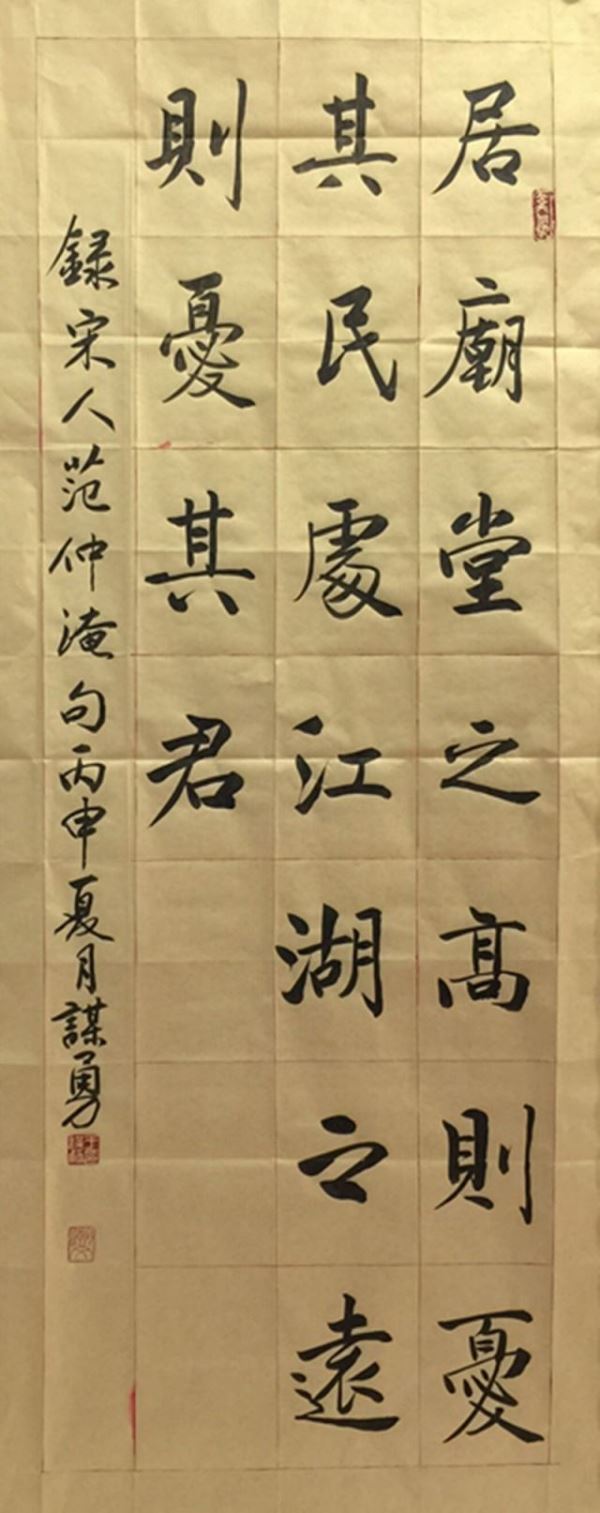 居廟堂之高則憂
其民處江湖之遠
則憂其君
録宋人范仲淹句丙申夏月謀勇